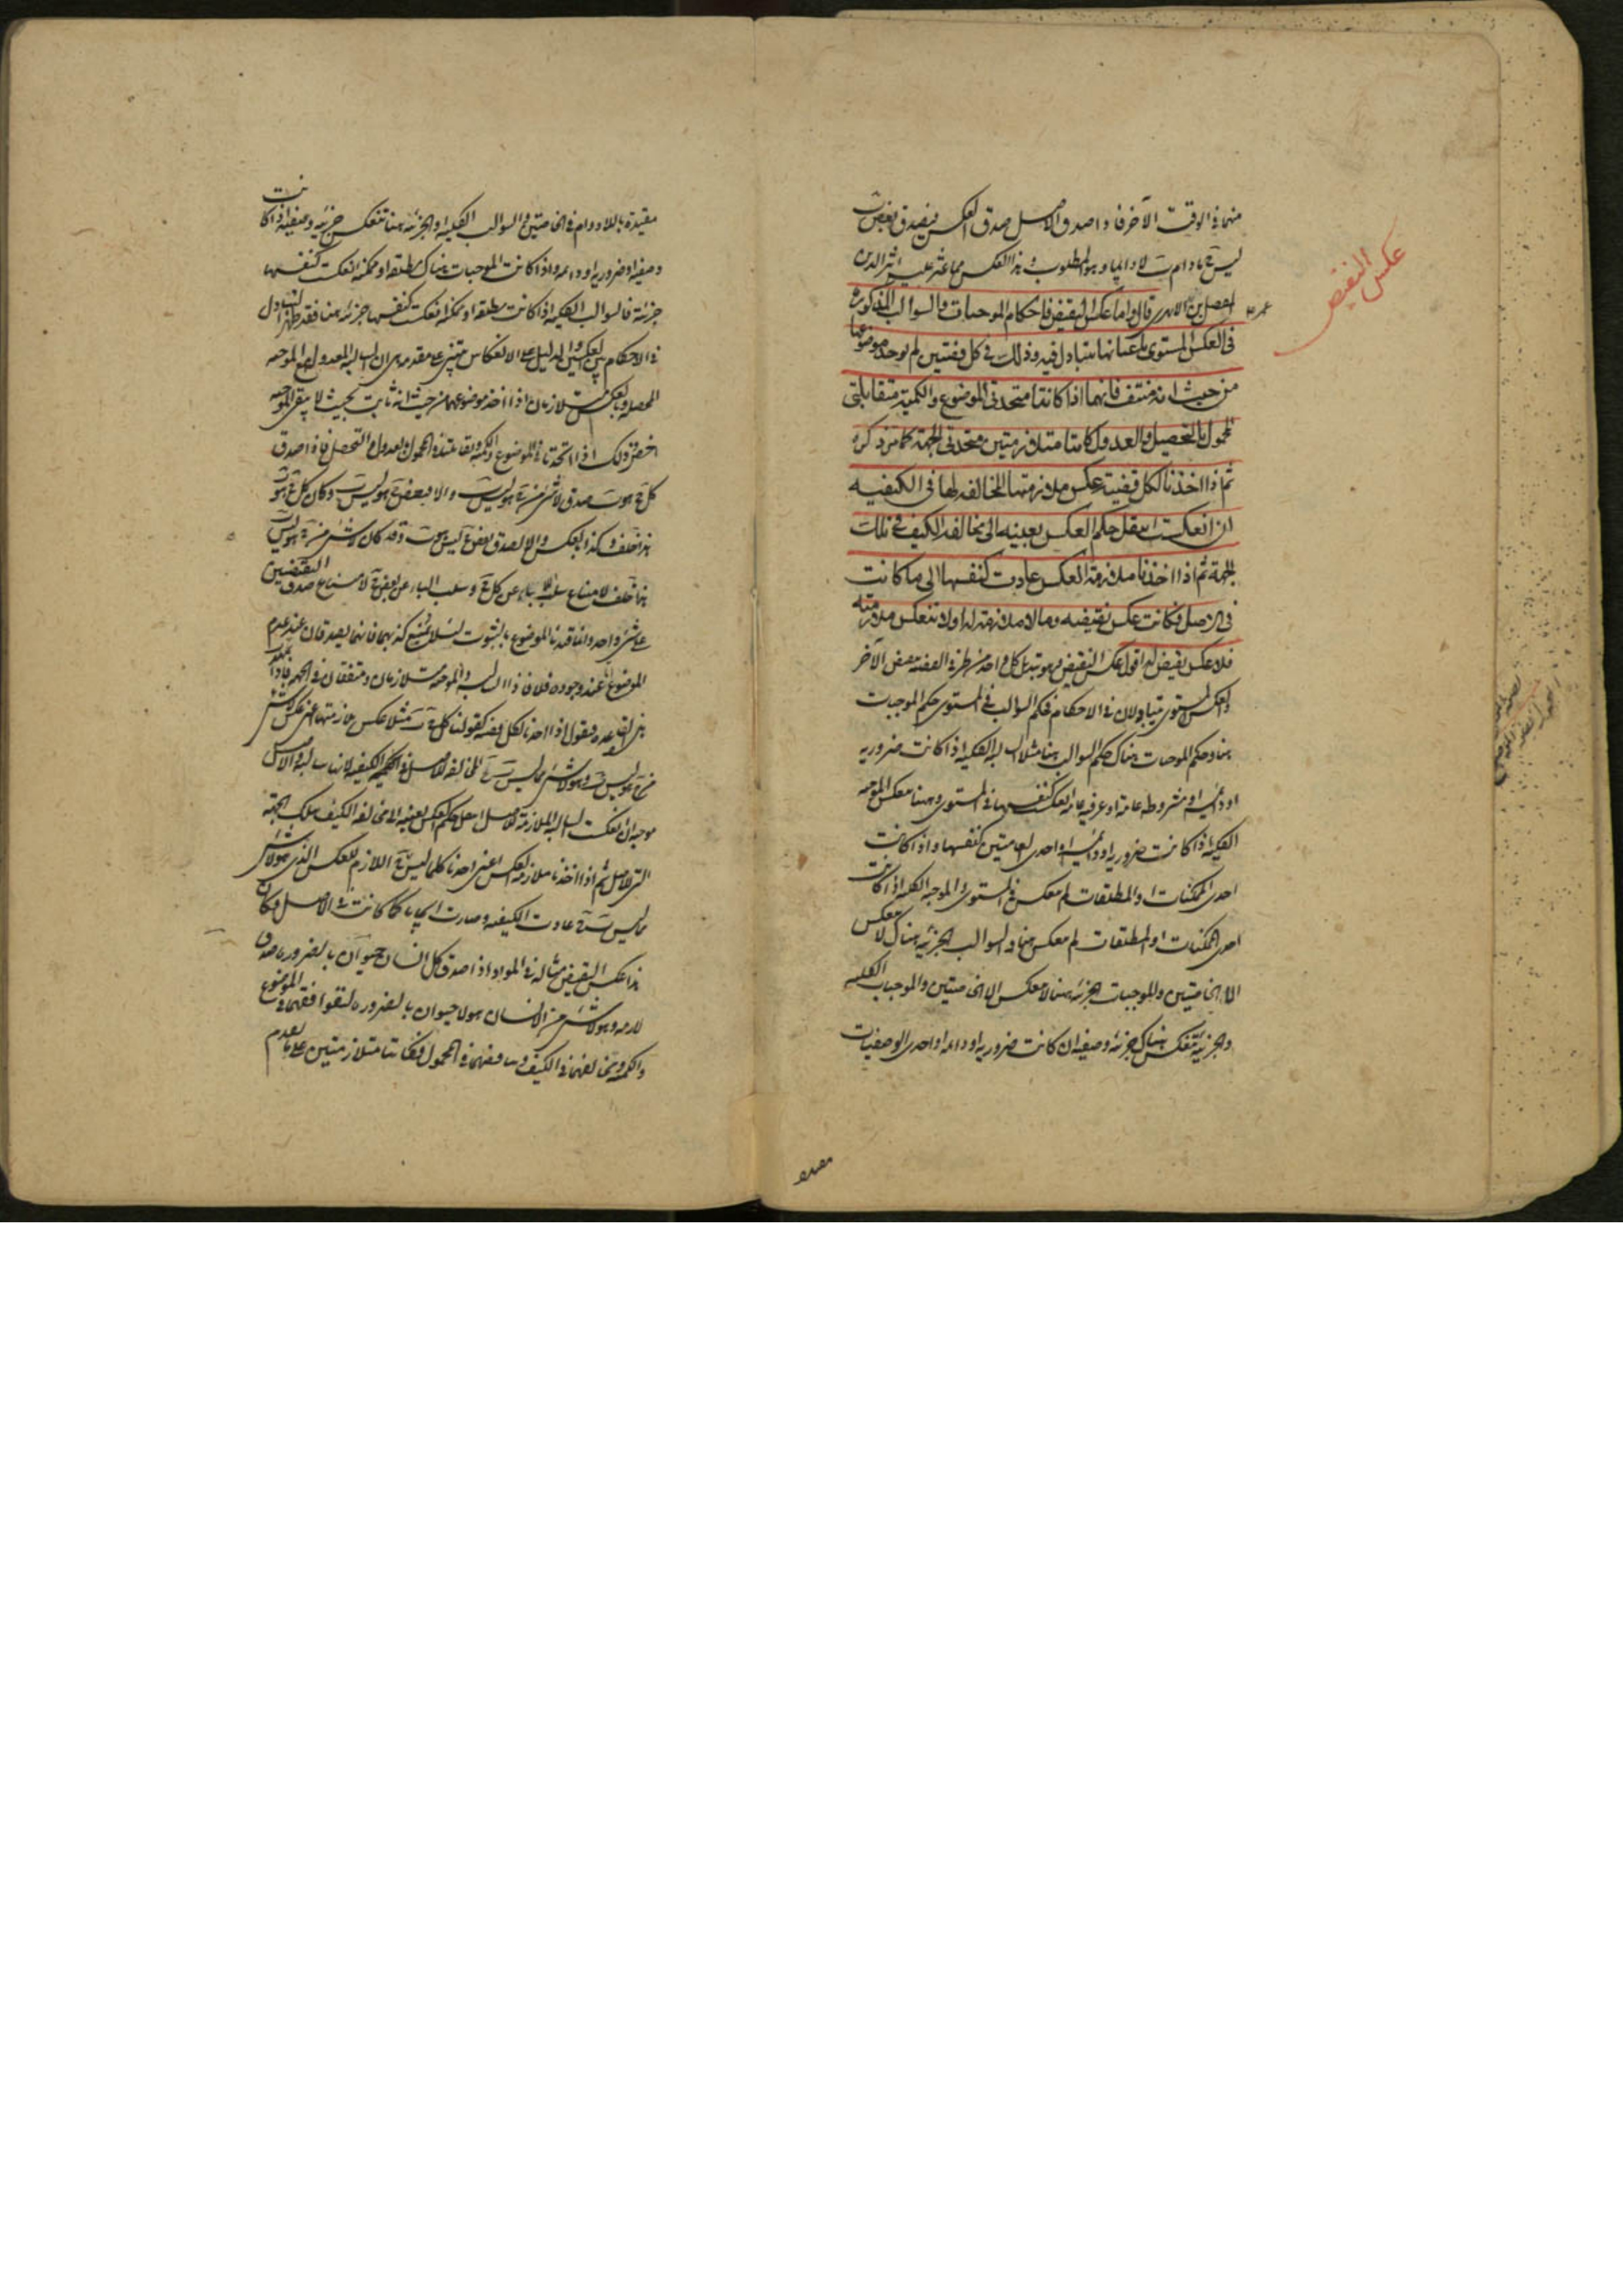 منهما فى الوقت الآخر فاذا صدق الاصل صدق العكس فيصدق بعض ب
ليس ج مادام ب لا دايما وهو المطلوب وهذا العكس مما عثر عليه اثير الدين
المفضل بن الابهرى قال واما عكس النقيض فاحكام الموجبات والسوالب المذكورة
فى العكس المستوى باعيانها يتبادل فيه وذلك فى كل قضيتين لم يوجد موضوعها
من حيث انه منتف فانهما اذا كانتا متحدتى الموضوع والكمية متقابلتى
المحمول بالتحصيل والعدول كانتا متلازمتين متحدتى الجهة كما مر ذكره
ثم اذا اخذنا لكل قضية عكس ملازمتها المخالفه لها فى الكيفيه
ان انعكست انتقل حكم العكس بعينه الى مخالفه الكيف فى تلك
الجهة ثم اذا اخذنا ملازمة العكس عادت كنفسها الى ما كانت
فى الاصل فكانت عكس نقيضه وما لا ملازمة له او لا تنعكس ملازمته
فلا عكس نقيض له اقول عكس النقيض هو تبديل كل واحد من طرفى القضيه بنقيض الآخر
والعكس المستوى متبادلان فى الاحكام فحكم السوالب فى المستوى حكم الموجبات
هنا وحكم الموجبات هناك حكم السوالب هنا مثلا السالبه الكليه اذا كانت ضروريه
او دائمه او مشروطه عامه او عرفيه عامه انعكست كنفسها فى المستوى وهنا تنعكس الموجبه
الكليه اذا كانت ضروريه او دائمه او احدى العامتين كنفسها واذا كانت
احدى الممكنات او المطلقات لم تنعكس فى المستوى والموجبه الكليه اذا كانت
احدى الممكنات او المطلقات لم تنعكس هنا والسوالب الجزئيه هناك لا تنعكس
الا الخاصتين والموجبات الجزئيه هنا لا تنعكس الا الخاصتين والموجبات الكليه
والجزئيه تنعكس هناك جزئيه وصفيه ان كانت ضروريه او دائمه او احدى الوصفيات
عكس النقيض
مقيدة
مقيدة باللادوام فى الخاصتين والسوالب الكليه والجزئيه هنا تنعكس جزئيه وصفيه اذا كانت
وصفيه او ضروريه او دائمه واذا كانت الموجبات هناك مطلقه او ممكنه انعكست كنفسها
جزئية فالسوالب الكليه اذا كانت مطلقه او ممكنه انعكست كنفسها جزئيه هنا فقد ظهر التبادل
فى الاحكام بين العكسين والدليل على الانعكاس مبنى على مقدمه هى ان السالبه المعدوله مع الموجبه
المحصله وبالعكس متلازمان اذا اخذ موضوعهما من حيث انه ثابت بحيث لا يبقى الموجبه
اخص وذلك اذا اتحدتا فى الموضوع والكميه وتقابلتا فى المحمول بالعدول والتحصيل فاذا صدق
كل ج هو ب صدق لا شئ من ج هو ليس ب والا فبعض ج هو ليس ب وكان كل ج هو ب
هذا خلف وكذا بالعكس والا لصدق بعض ج ليس هو ب وقد كان لا شئ من ج هو ليس ب
هذا خلف لامتناع سلب الباء عن كل ج وسلب الباء عن بعض ج لامتناع صدق النقيضين
على شئ واحد وانما قيدنا الموضوع بالثبوت لئلا يمتنع كذبهما فانهما يصدقان عند عدم
الموضوع عند وجوده فلا فاذا السالبه والموجبه متلازمان ومتفقان فى الجهه فاذا تمهد
هذه القاعده فنقول اذا اخذنا لكل قضيه كقولنا كل ج ب مثلا عكس ملازمتها اعنى عكس لا شئ
من ج هو ليس ب وهو لا شئ مما ليس ب ج المخالفه للاصل فى الكيفيه لانها سالبه والاصل
موجبه ان انعكست السالبه الملازمة للاصل انتقل حكم العكس بعينه الى مخالفه الكيف بتلك الجهة
التى للاصل ثم اذا اخذنا ملازمة العكس اعنى اخذنا كل ما ليس ب ج اللازم للعكس الذى هو لا شئ
مما ليس ب ج عادت الكيفيه وصارت ايجابا كما كانت فى الاصل وكان
هذا عكس النقيض مثاله فى المواد اذا صدق كل انسان حيوان بالضروره صدق
لازمه وهو لا شئ من الانسان هو لا حيوان بالضروره لتوافقهما فى الموضوع
والكميه وتخالفهما فى الكيف وتناقضهما فى المحمول وكانتا متلازمتين على ما تقدم